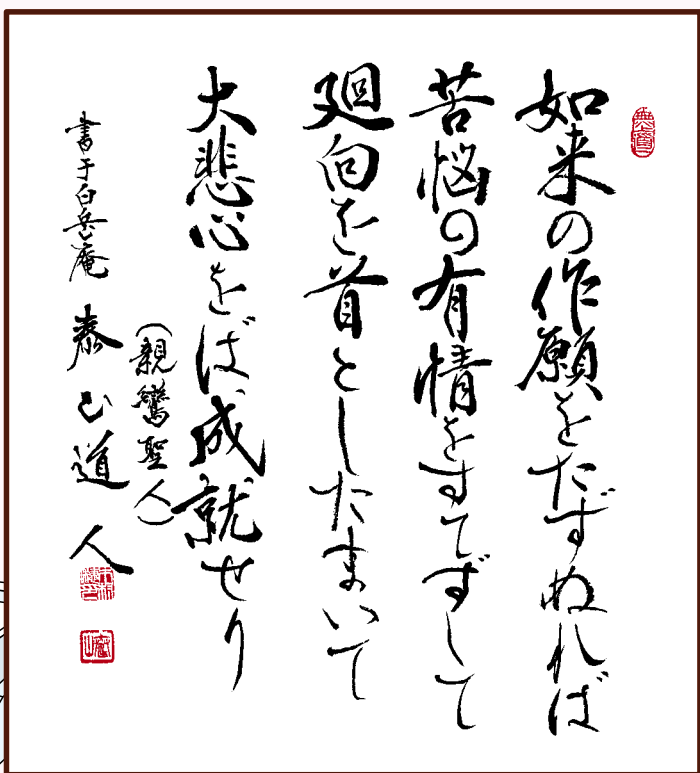 如来の作願をたずぬれば
苦悩の有情をすてずして
廻向を首としたまいて
大悲心をば成就せり
(親鸞聖人)
書于白兵庵 泰山道人